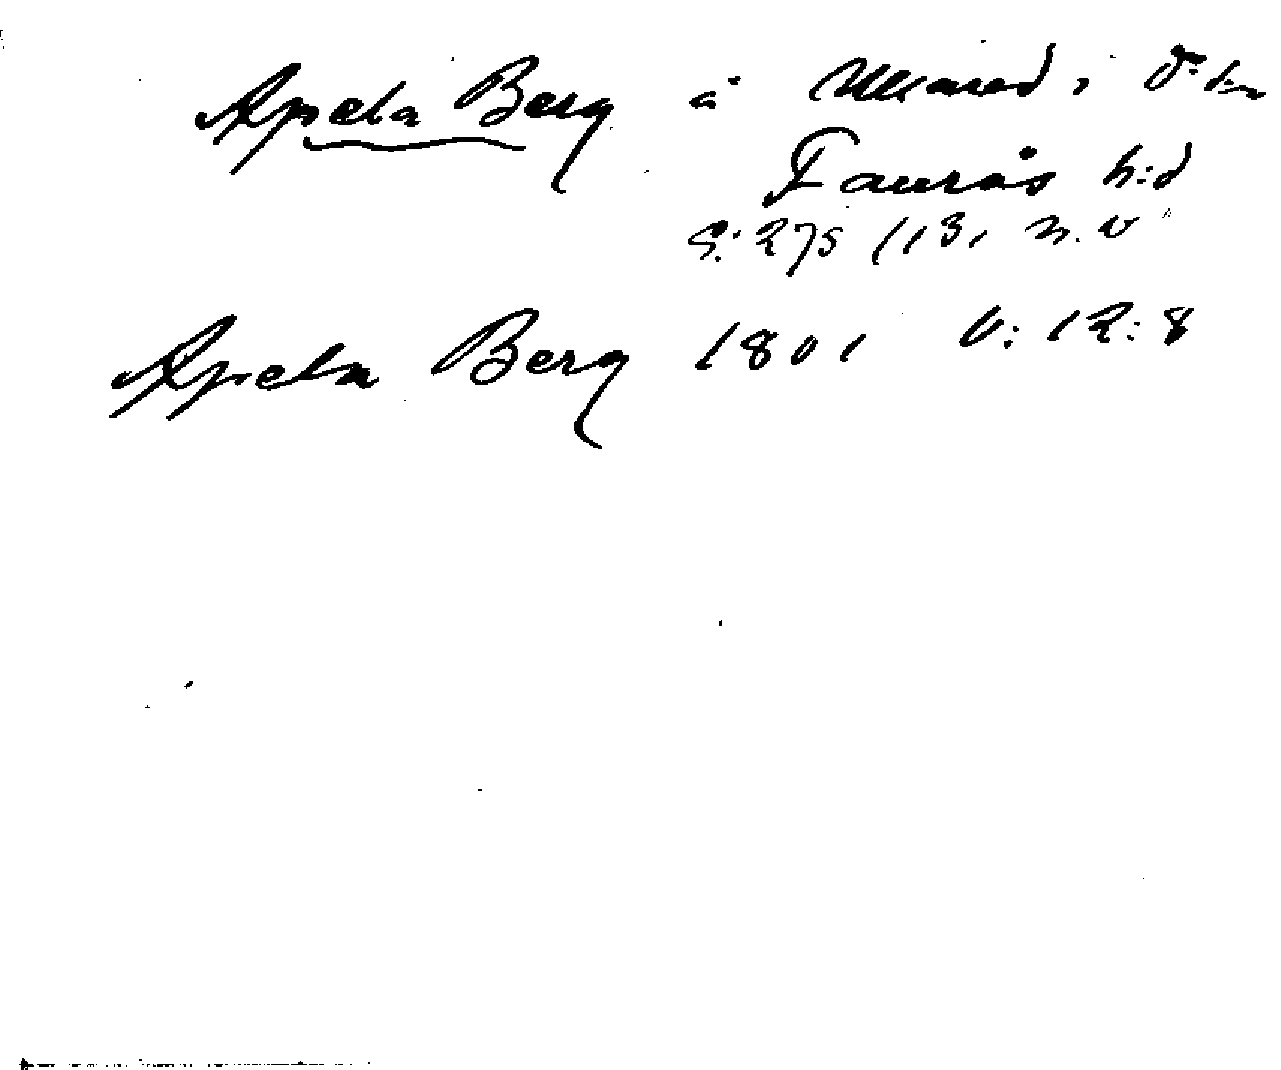 Apela Berg å Ullared, d:n
Faurås h:d
S: 275 /13, n. v
Apela Berg 1801 V: 12: 8